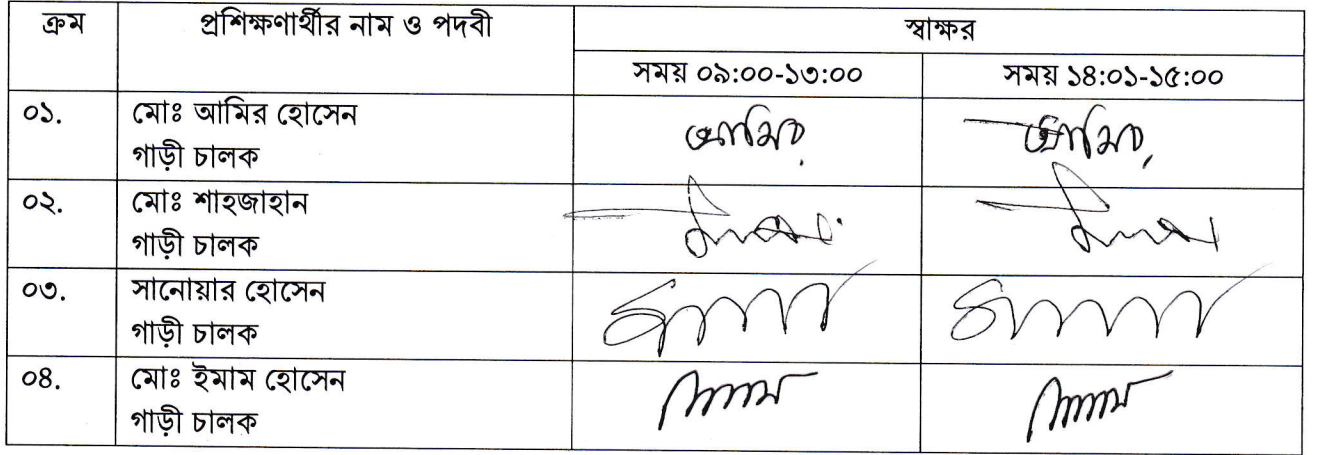 ক্রম প্রশিক্ষণার্থীর নাম ও পদবী স্বাক্ষর
সময় ০৯:০০-১৩:০০ সময় ১৪:০১-১৫:০০
০১. মোঃ আমির হোসেন আমির আমির
গাড়ী চালক
০২. মোঃ শাহজাহান
গাড়ী চালক
০৩. সানোয়ার হোসেন
গাড়ী চালক
০৪. মোঃ ইমাম হোসেন
গাড়ী চালক